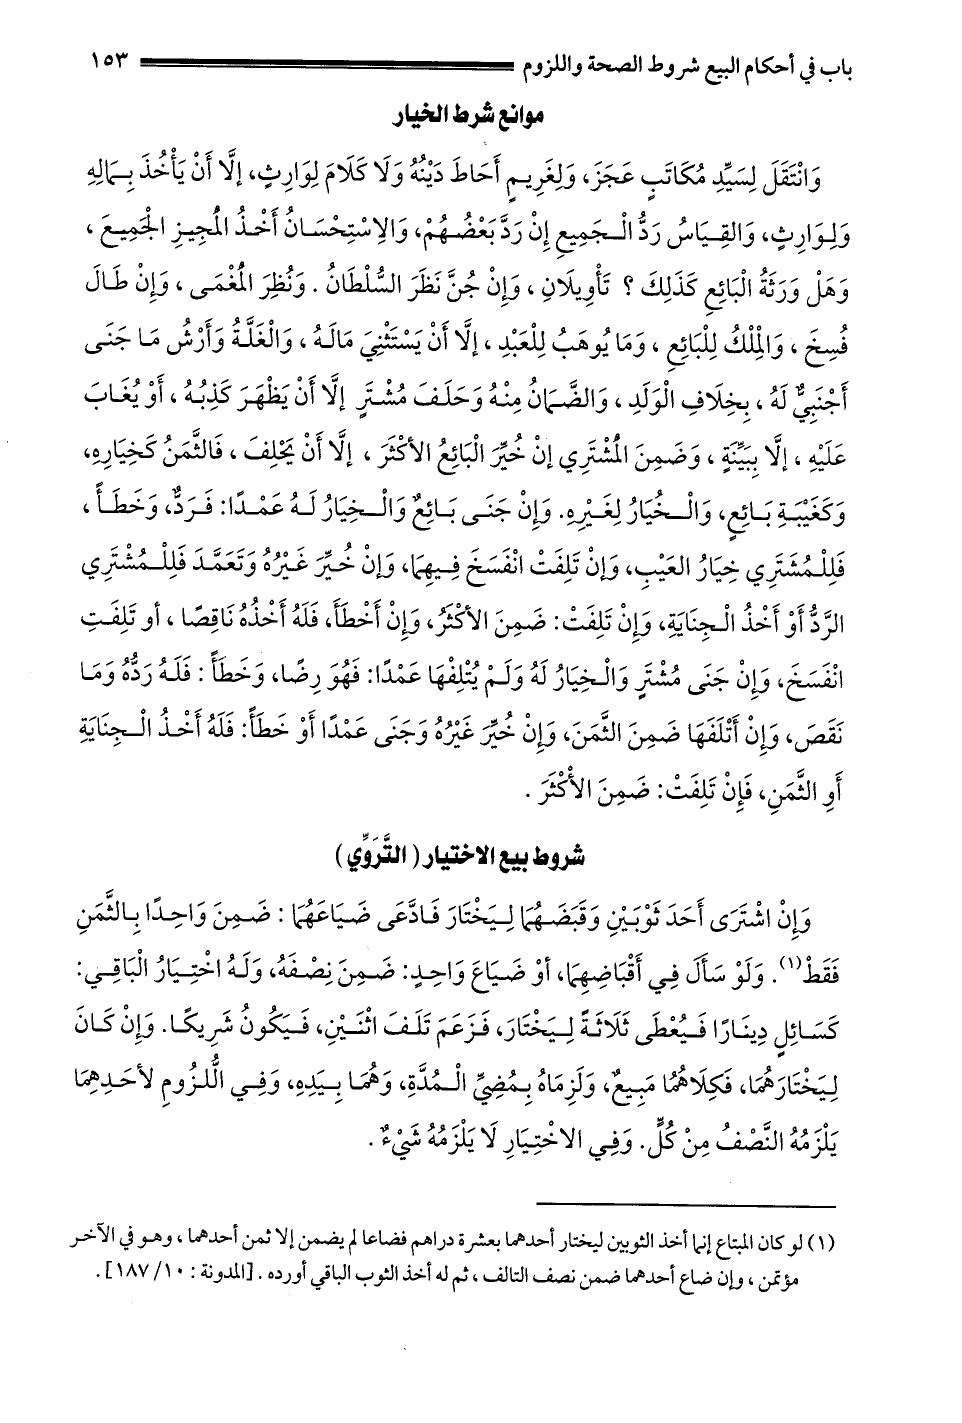 باب في أحكام البيع شروط الصحة واللزوم ١٥٣
موانع شرط الخيار
وَانْتَقَلَ لِسَيِّدِ مُكَاتَبٍ عَجَزَ، وَلِغَرِيمٍ أَحَاطَ دَيْنُهُ وَلَا كَلَامَ لِوَارِثٍ، إلَّا أَنْ يَأْخُذَ بِمَالِهِ
وَلِوَارِثٍ، وَالقِيَاسُ رَدُّ الْجَمِيعِ إنْ رَدَّ بَعْضُهُمْ، وَالاِسْتِحْسَانُ أَخْذُ الْمُجِيزِ الْجَمِيعَ ،
وَهَلْ وَرَثَةُ الْبَائِعِ كَذَلِكَ ؟ تَأْوِيلَانِ ، وَإِنْ جُنَّ نَظَرَ السُّلْطَانُ . وَنُظِرَ الْمُغْمَى ، وَإِنْ طَالَ
فُسِخَ ، وَالْمِلْكُ لِلْبَائِعِ ، وَمَا يُوهَبُ لِلْعَبْدِ ، إلَّا أَنْ يَسْتَثْنِيَ مَالَهُ ، وَالْغَلَّةُ وَأَرْشُ مَا جَنَى
أَجْنَبِيٌّ لَهُ ، بِخِلَافِ الْوَلَدِ ، وَالضَّمَانُ مِنْهُ وَحَلَفَ مُشْتَرٍ إلَّا أَنْ يَظْهَرَ كَذِبُهُ ، أَوْ يُغَابَ
عَلَيْهِ ، إلَّا بِبَيِّنَةٍ ، وَضَمِنَ الْمُشْتَرِي إنْ خُيِّرَ الْبَائِعُ الأَكْثَرَ ، إلَّا أَنْ يَحْلِفَ ، فَالثَّمَنُ كَخِيَارِهِ،
وَكَغَيْبَةِ بَائِعٍ، وَالْخُيَارُ لِغَيْرِهِ. وَإِنْ جَنَى بَائِعٌ وَالْخِيَارُ لَهُ عَمْدًا: فَرَدٌّ، وَخَطَأً ،
فَلِلْمُشتَرِي خِيَارُ العَيْبِ، وَإِنْ تَلِفَتْ انْفَسَخَ فِيهِمَا، وَإِنْ خُيِّرَ غَيْرُهُ وَتَعَمَّدَ فَلِلْمُشْتَرِي
الرَّدُّ أَوْ أَخْذُ الْجِنَايَةِ، وَإِنْ تَلِفَتْ: ضَمِنَ الأَكْثَرُ، وَإِنْ أَخْطَأَ، فَلَهُ أَخْذُهُ نَاقِصًا ، أو تَلِفَتِ
انْفَسَخَ، وَإِنْ جَنَى مُشْتَرٍ وَالْخِيَارُ لَهُ وَلَمْ يُتْلِفْهَا عَمْدًا: فَهُوَ رِضًا، وَخَطَأً : فَلَهُ رَدُّهُ وَمَا
نَقَصَ، وَإِنْ أَتْلَفَهَا ضَمِنَ الثَّمَنَ، وَإِنْ خُيِّرَ غَيْرُهُ وَجَنَى عَمْدًا أَوْ خَطَأً: فَلَهُ أَخْذُ الْجِنَايَةِ
أَوِ الثَّمَنِ، فَإِنْ تَلِفَتْ: ضَمِنَ الأَكْثَرَ .
شروط بيع الاختيار ( التَّرَوِّي )
وَإِنْ اشْتَرَى أَحَدَ ثَوْبَيْنِ وَقَبَضَهُمَا لِيَخْتَارَ فَادَّعَى ضَيَاعَهُمَا : ضَمِنَ وَاحِدًا بِالثَّمَنِ
فَقَطْ(١). وَلَوْ سَأَلَ فِي أَقْبَاضِهِمَا، أوْ ضَيَاعَ وَاحِدٍ: ضَمِنَ نِصْفَهُ، وَلَهُ اخْتِيَارُ الْبَاقِي:
كَسَائِلٍ دِينَارًا فَيُعْطَى ثَلَاثَةً لِيَخْتَارَ، فَزَعَمَ تَلَفَ اثْنَيْنِ، فَيَكُونُ شَرِيكًا. وَإِنْ كَانَ
لِيَخْتَارَهُمَا، فَكِلَاهُمَا مَبِيعٌ، وَلَزِمَاهُ بِمُضِيِّ الْمُدَّةِ، وَهُمَا بِيَدِهِ، وَفِي اللُّزُومِ لأَحَدِهِمَا
يَلْزَمُهُ النَّصْفُ مِنْ كُلٍّ. وَفِي الاخْتِيَارِ لَا يَلْزَمُهُ شَيْءٌ.
(١) لو كان المبتاع إنما أخذ الثوبين ليختار أحدهما بعشرة دراهم فضاعا لم يضمن إلا ثمن أحدهما ، وهو في الآخر
مؤتمن ، وإن ضاع أحدهما ضمن نصف التالف ، ثم له أخذ الثوب الباقي أو رده . [المدونة : ١٠/ ١٨٧] .